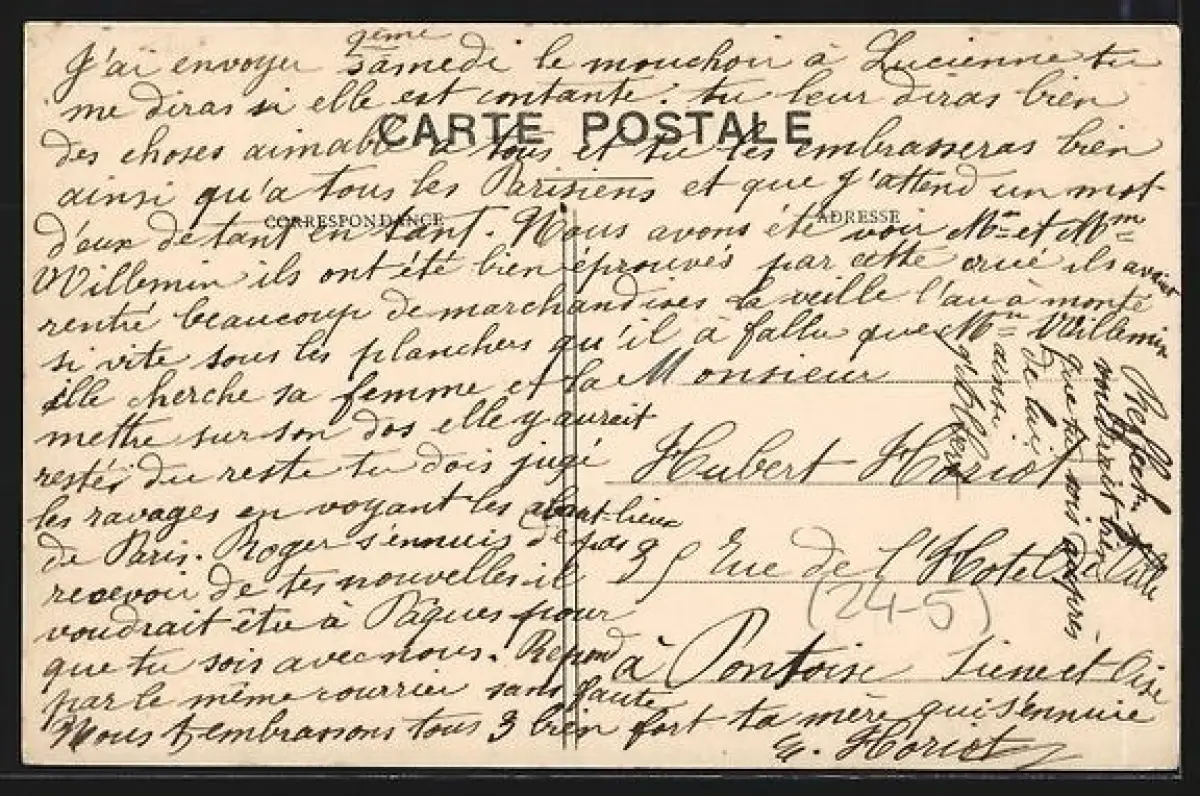 J'ai envoyer samedi le mouchoir à Lucienne tu
me diras si elle est contante. tu leur diras bien
CARTE POSTALE
des choses aimable à tous et tu les embrasseras bien
ainsi qu'a tous les Parisiens et que j'attend un mot
CORRESPONDANCE
ADRESSE
d'eux de tant en tant. Nous avons été voir Mr et Mme
Willemin ils ont été bien éprouvés par cette crue ils avait
rentré beaucoup de marchandises la veille l'au à monté
si vite sous les planchers qu'il à fallu que Mr Willemin
ille cherche sa femme et la
mettre sur son dos elle y aureit
restéi du reste tu dois jugé
les ravages en voyant les
de Paris. Roger s'ennuis de pas
recevoir de tes nouvelles il
voudrait être à Pâques pour
que tu sois avec nous. Repond
par le même courrier sans faute
Nous t'embrassons tous 3 bien fort ta mère qui s'ennuie
E. Horiot
Monsieur
Hubert Horiot
35 Rue de l'Hotel de Ville
(24-5)
à Pontoise Seine et Oise
que tu sois auprès
de lui
ainsi